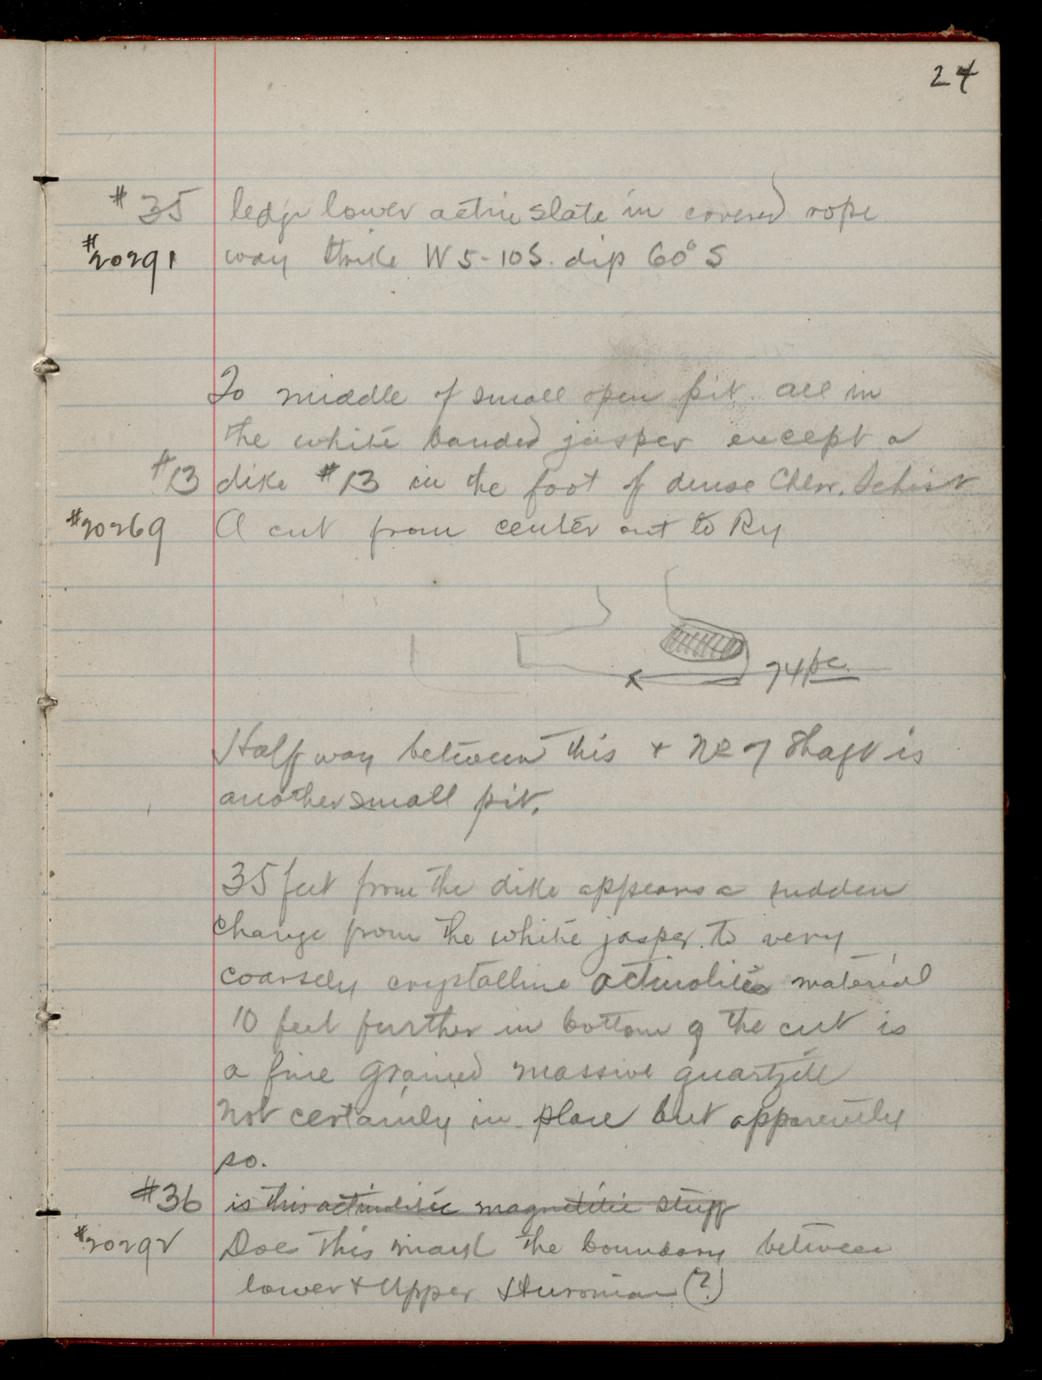 24
#35 ledge lower actin slate in covered rope
#20291 way strike W 5-10S. dip 60° S
To middle of small open pit. all in
the white banded jasper except a
#13 dike #13 in the foot of dense Chlor. Schist
#20269 A cut from center out to Ry
74 pc
Half way between this + No 7 Shaft is
another small pit.
35 feet from the dike appears a sudden
change from the white jasper. to very
coarsely crystalline actinolitic material
10 feet further in bottom of the cut is
a fine grained massive quartzite
not certainly in place but apparently
so.
#36 is this actinolitic magnetitic stuff
#20292 Does this mark the boundary between
lower + Upper Huronian (?)